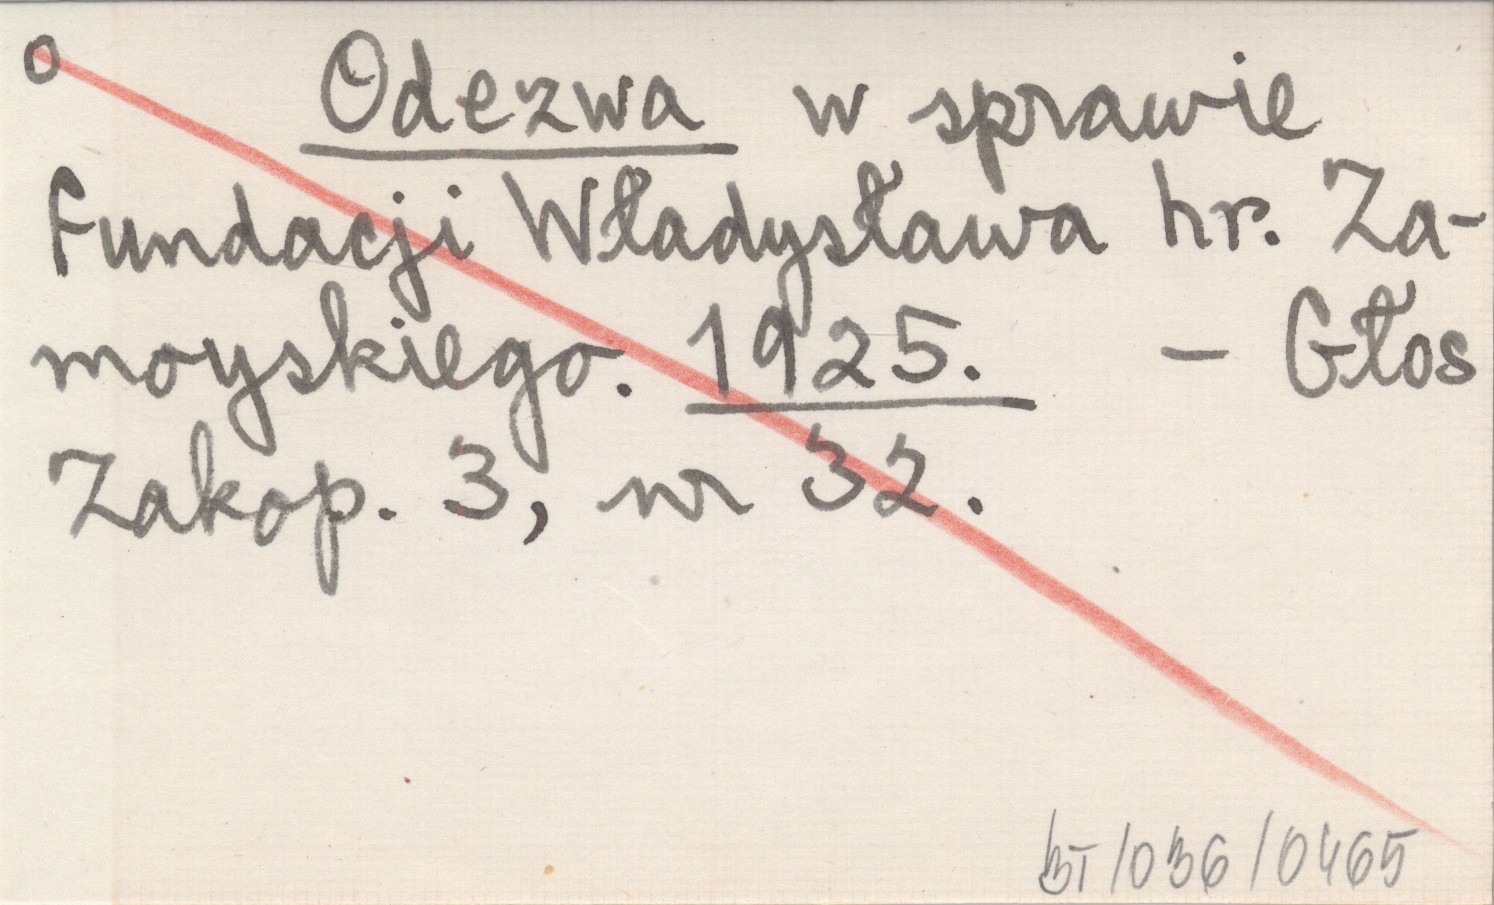 o Odezwa w sprawie
Fundacji Władysława hr. Za-
moyskiego. 1925. - Głos
Zakop. 3, nr 32.
BT/036/0465